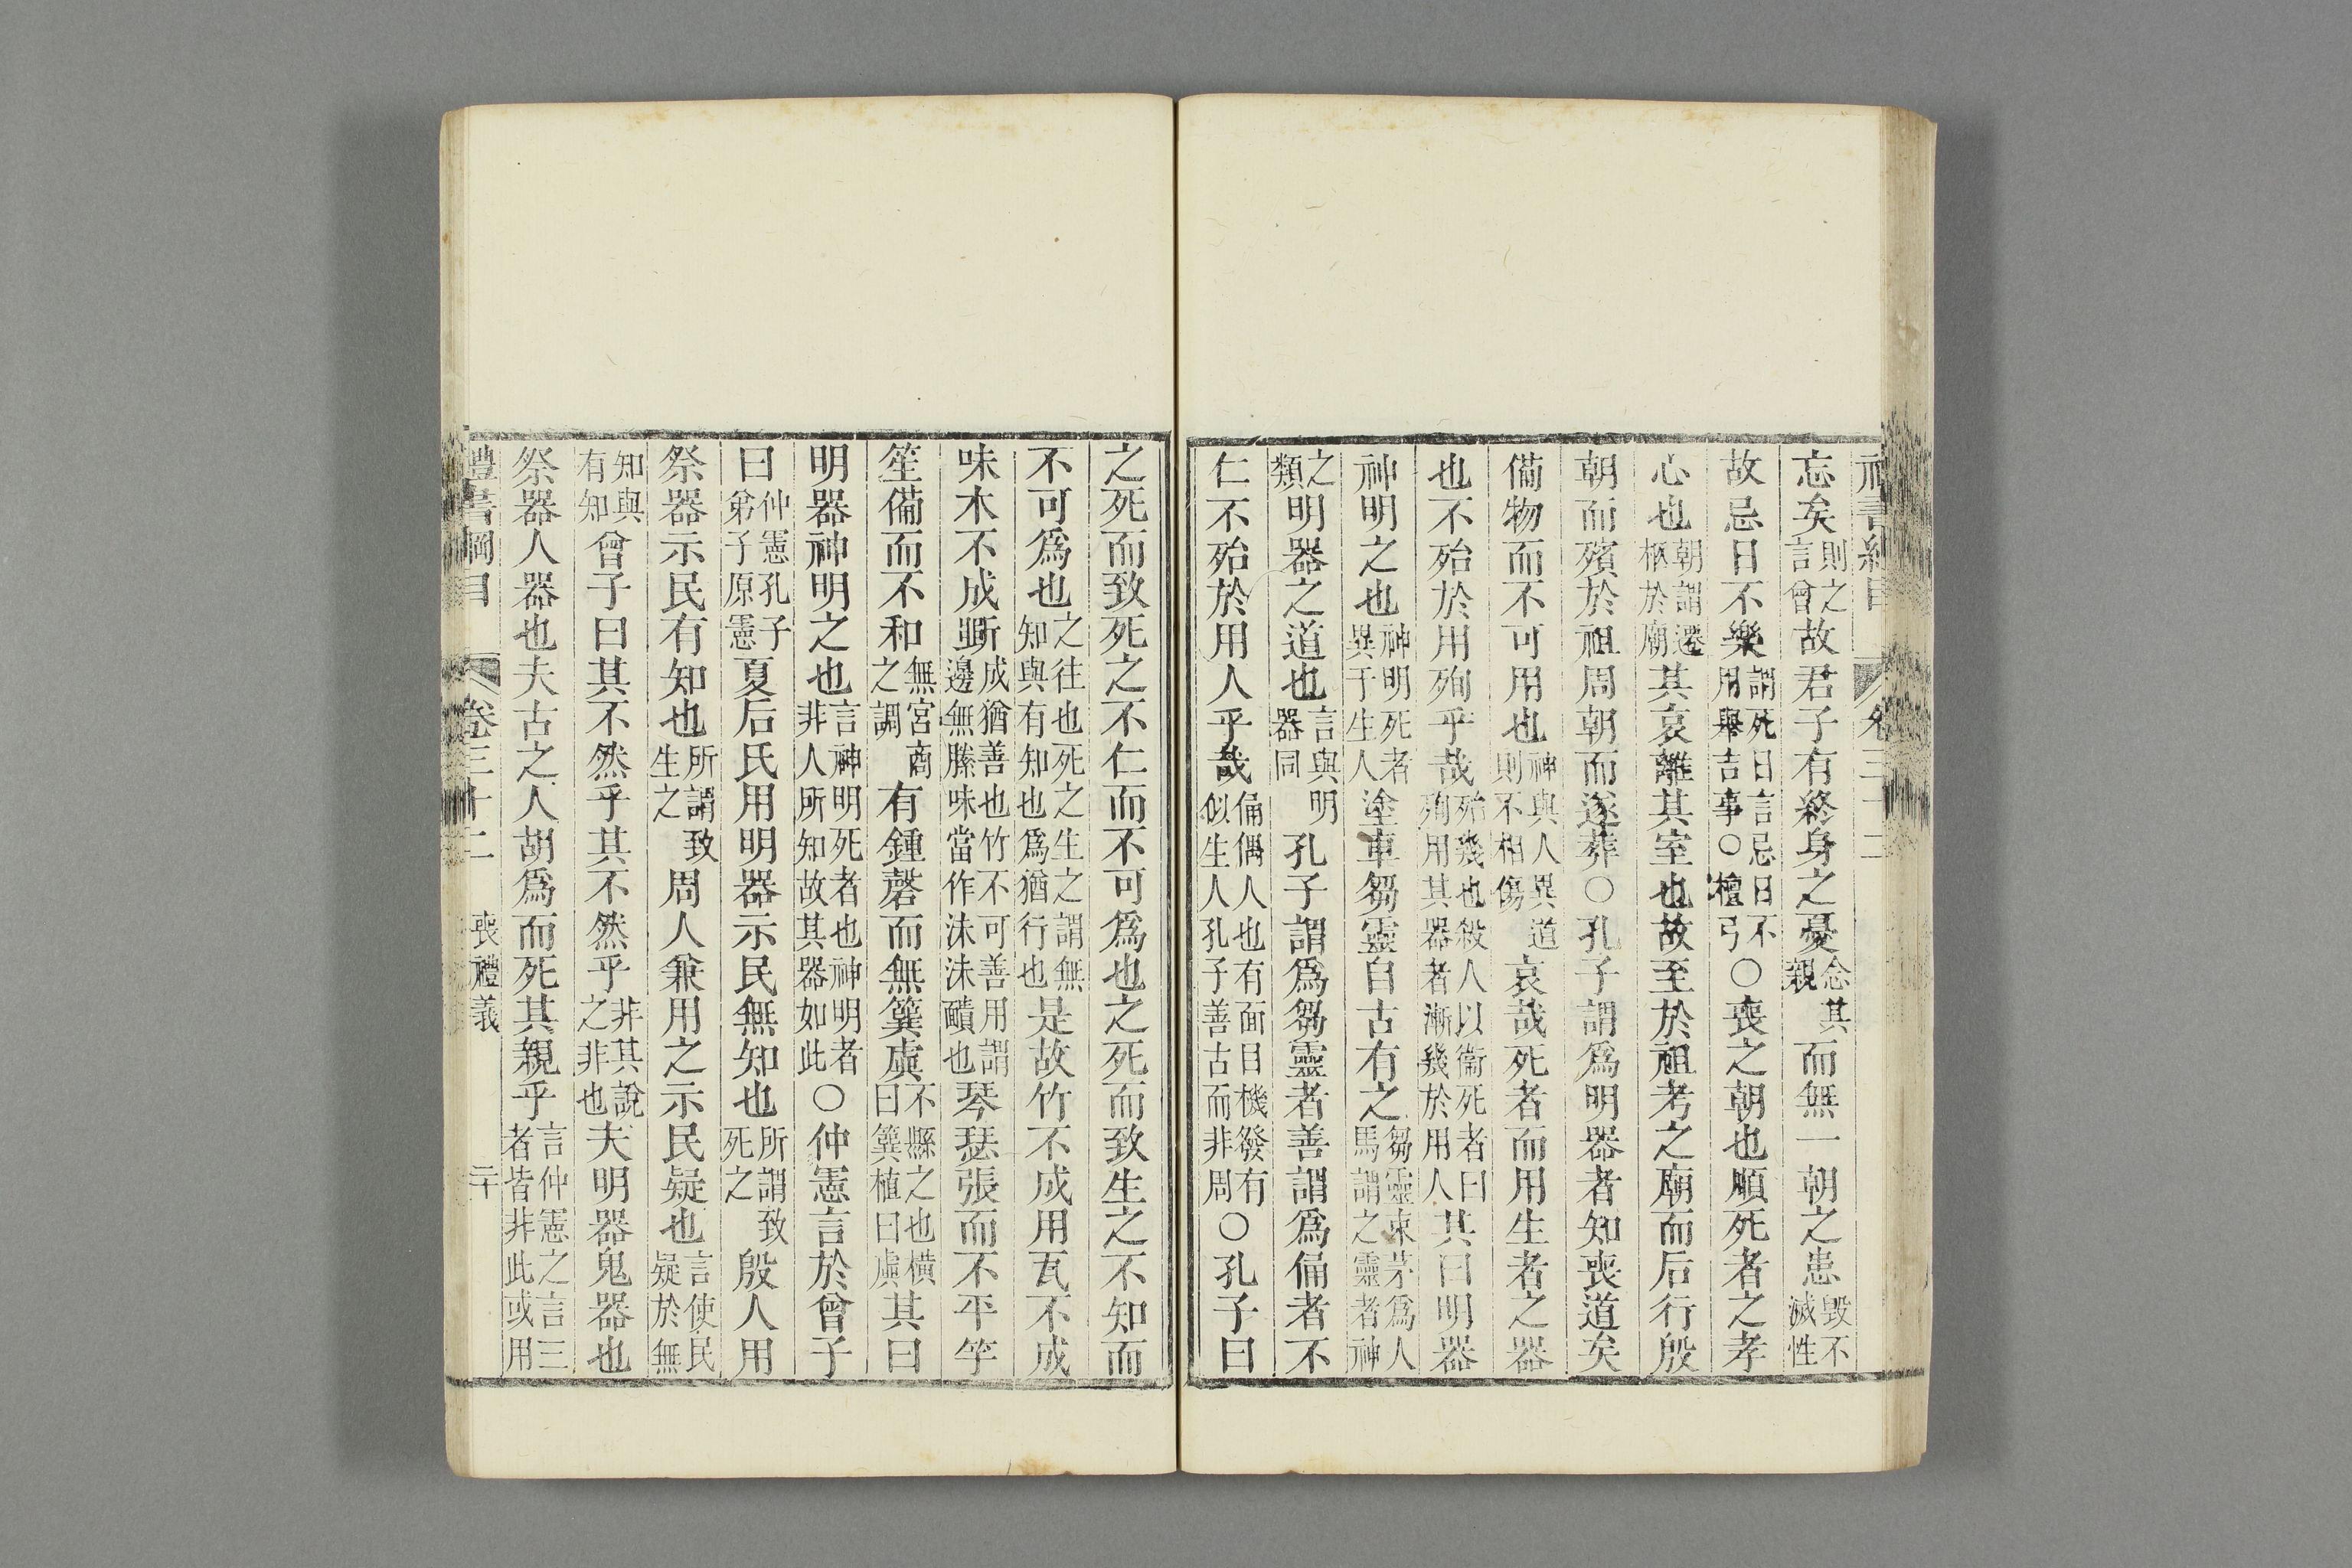 忘矣則之言曾故君子有終身之憂念其親而無一朝之患毀不滅性
故忌日不樂謂死日言忌日不用舉吉事○檀弓○喪之朝也順死者之孝
心也朝謂遷柩於廟其哀離其室也故至於祖考之廟而后行殷
朝而殯於祖周朝而遂葬○孔子謂爲明器者知喪道矣
備物而不可用也神與人異道則不相傷哀哉死者而用生者之器
也不殆於用殉乎哉殆幾也殺人以衞死者曰殉用其器者漸幾於用人其曰明器
神明之也神明死者異于生人塗車芻靈自古有之芻靈束茅爲人馬謂之靈者神
之類明器之道也言與明器同孔子謂爲芻靈者善謂爲俑者不
仁不殆於用人乎哉俑偶人也有面目機發有似生人孔子善古而非周○孔子曰
之死而致死之不仁而不可爲也之死而致生之不知而
不可爲也之往也死之生之謂無知與有知也爲猶行也是故竹不成用瓦不成
味木不成斲成猶善也竹不可善用謂邊無縢味當作沬沬靧也琴瑟張而不平竽
笙備而不和無宮商之調有鍾磬而無簨虡不縣之也橫曰簨植曰虡其曰
明器神明之也言神明死者也神明者非人所知故其器如此○仲憲言於曾子
曰仲憲孔子弟子原憲夏后氏用明器示民無知也所謂致死之殷人用
祭器示民有知也所謂致生之周人兼用之示民疑也言使民疑於無
知與有知曾子曰其不然乎其不然乎非其說之非也夫明器鬼器也
祭器人器也夫古之人胡爲而死其親乎言仲憲之言三者皆非此或用
禮書綱目 卷三十二 喪禮義 二十